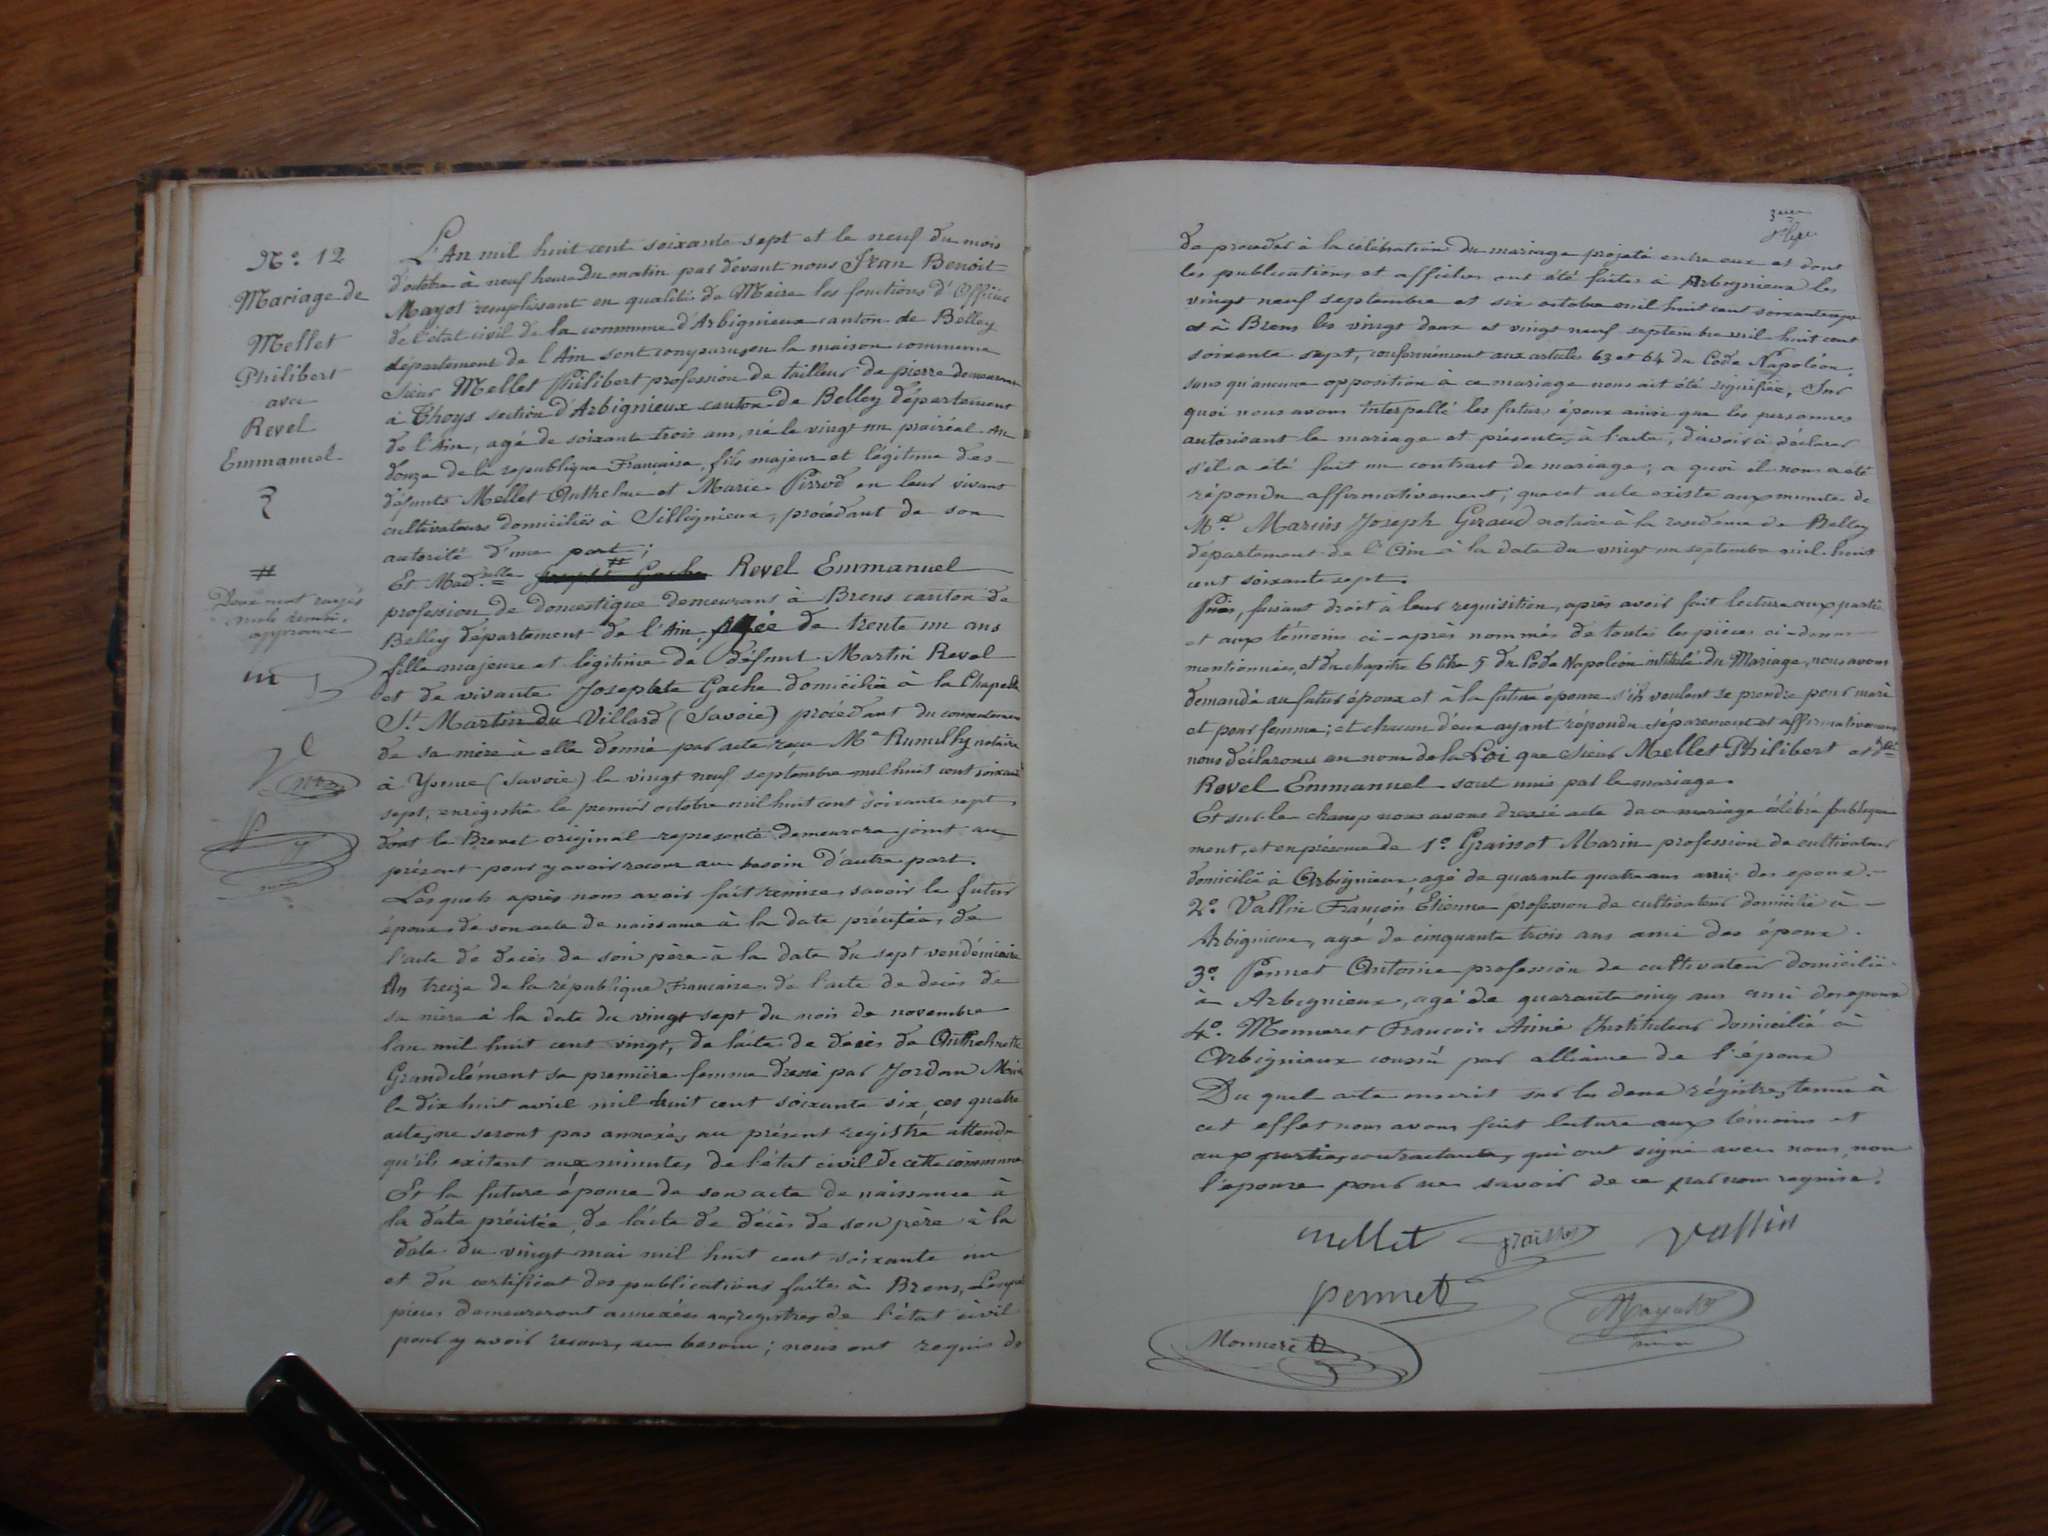 N°. 12
Mariage de
Mellet
Philibert
avec
Revel
Emmanuel
#
Deux mots rayés
nuls
approuvé
L'An mil huit cent soixante sept et le neuf du mois
d'octobre à neuf heure du matin par devant nous Jean Benoit
Mayot remplissant en qualité de Maire les fonctions d'Officier
de l'état civil de la commune d'Arbignieux canton de Belley
département de l'Ain sont comparus en la maison commune
sieur Mellet Philibert profession de tailleur de pierre demeurant
à Thoys section d'Arbignieux canton de Belley département
de l'Ain, agé de soixante trois ans, né le vingt un prairéal An
douze de la republique Française, fils majeur et légitime des
défunts Mellet Anthelme et Marie Pirrod en leur vivant
cultivateurs domiciliés à Sillignieux, procédant de son
autorité d'une part;
Et Mad.elle Revel Emmanuel
profession de domestique demeurant à Brens canton de
Belley département de l'Ain Agée de trente un ans
fille majeure et légitime de défunt Martin Revel
et de vivante Josephte Gache domicilié à la Chapelle
St. Martin du Villard (Savoie) procédant du consentement
de sa mère à elle donné par acte reçu Me Rumilly notaire
à Yenne (Savoie) le vingt neuf septembre mil huit cent soixante
sept, enregistré le premier octobre mil huit cent soixante sept,
dont le Brevet original représenté demeurera joint au
présent pour y avoir recour au besoin d'autre part.
Lesquels après nous avoir fait remise savoir le futur
époux de son acte de naissance à la date précitée, de
l'acte de decès de son père à la date du sept vendémiaire
An treize de la république Française, de l'acte de decès de
sa mère à la date du vingt sept du mois de novembre
l'an mil huit cent vingt, de l'acte de decès de Anthelmette
Grandclément sa première femme dressé par Jordan Maire
le dix huit avril mil huit cent soixante six, ces quatre
actes ne seront pas annexés au présent registre attendu
qu'ils existent aux minutes de l'état civil de cette commune
Et la future épouse de son acte de naissance à
la date précitée, de l'acte de décès de son père à la
date du vingt mai mil huit cent soixante un
et du certificat des publications faites à Brens, Lesquels
pièces demeureront annexées aux registres de l'état civil
pour y avoir recours au besoin; nous ont requis de
de proceder à la célébration du mariage projeté entre eux et dont
les publications et affiches ont été faites à Arbignieux les
vingt neuf septembre et six octobre mil huit cent soixante sept
et à Brens les vingt deux et vingt neuf septembre mil huit cent
soixante sept, conformément aux articles 63 et 64 du Code Napoléon,
sans qu'aucune opposition à ce mariage nous ait été signifiée, Sur
quoi nous avons interpellé les futurs époux ainsi que les personnes
autorisant le mariage et présente à l'acte, d'avoir à déclarer
s'il a été fait un contrat de mariage; a quoi il nous a été
répondu affirmativement; que cet acte existe aux minute de
Me. Marius Joseph Giraud notaire à la residence de Belley
département de l'Ain à la date du vingt un septembre mil huit
cent soixante sept.
Puis, faisant droit à leur requisition, après avoir fait lecture aux parties
et aux témoins ci-après nommés de toutes les pièces ci-dessus
mentionnées, et du chapitre 6 titre 5 du Code Napoléon intitulé du Mariage, nous avons
demandé au futur époux et à la future epouse s'ils veulent se prendre pour mari
et pour femme; et chacun d'eux ayant répondu séparement et affirmativement
nous déclarons au nom de la Loi que sieur Mellet Philibert et Dlle
Revel Emmanuel sont unis par le mariage.
Et sur le champ nous avons dressé acte de ce mariage célébré publique
ment, et en présence de 1°. Graissot Marin profession de cultivateur
domicilié à Arbignieux, agé de quarante quatre ans ami des epoux.
2°. Vallin François Etienne profession de cultivateur domicilié à
Arbignieux, agé de cinquante trois ans ami des époux.
3°. Pennet Antoine profession de cultivateur domicilié
à Arbignieux, agé de quarante cinq ans ami des epoux
4°. Monneret François Aimé Instituteur domicilié à
Arbignieux cousin par alliance de l'époux
Du quel acte inscrit sur les deux régistres tenus à
cet effet nous avons fait lecture aux témoins et
aux parties contractantes qui ont signé avec nous, non
l'epouse pour ne savoir de ce par nous requise.
Mellet Graissot Vallin
Pennet
Mayot
Monneret